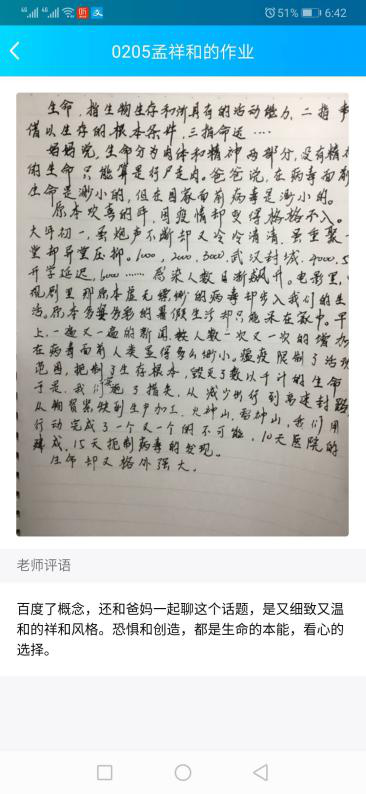 51% 6:42
0205孟祥和的作业
生命，指生物生存和所具有的活动能力，二指事
借以生存的根本条件，三指命运····
妈妈说，生命分为肉体和精神两部分，没有精
的生命只能算是行尸走肉。爸爸说，在病毒面前
生命是渺小的，但在国家面前病毒是渺小的。
原本欢喜的年，因疫情却变得格格不入。
大年初一，虽炮声不断却又冷冷清清，虽重聚一
堂却异常压抑。1000，2000，3000，武汉封城，4000，5
开学延迟，6000······感染人数日渐飙升。电影里，
视剧里那原本蓝无的病毒却步入我们的生
活。原本多姿多彩的暑假生活却只能呆在家中。早
上，一遍又一遍的新闻，人数一次又一次的增加
在病毒面前人类显得多么渺小。瘟疫限制了活动
范围，扼制了生存根本，毁灭了数以千计的生命
于是，我们魔了指失，从减少出行到高速封路
从物资紧缺到生产加工，火神山，雷神山，我们用
行动完成了一个又一个的不可能，10天医院的
建成，15天扼制病毒的发现。
生命却又格外强大。
老师评语
百度了概念，还和爸妈一起聊这个话题，是又细致又温
和的祥和风格。恐惧和创造，都是生命的本能，看心的
选择。